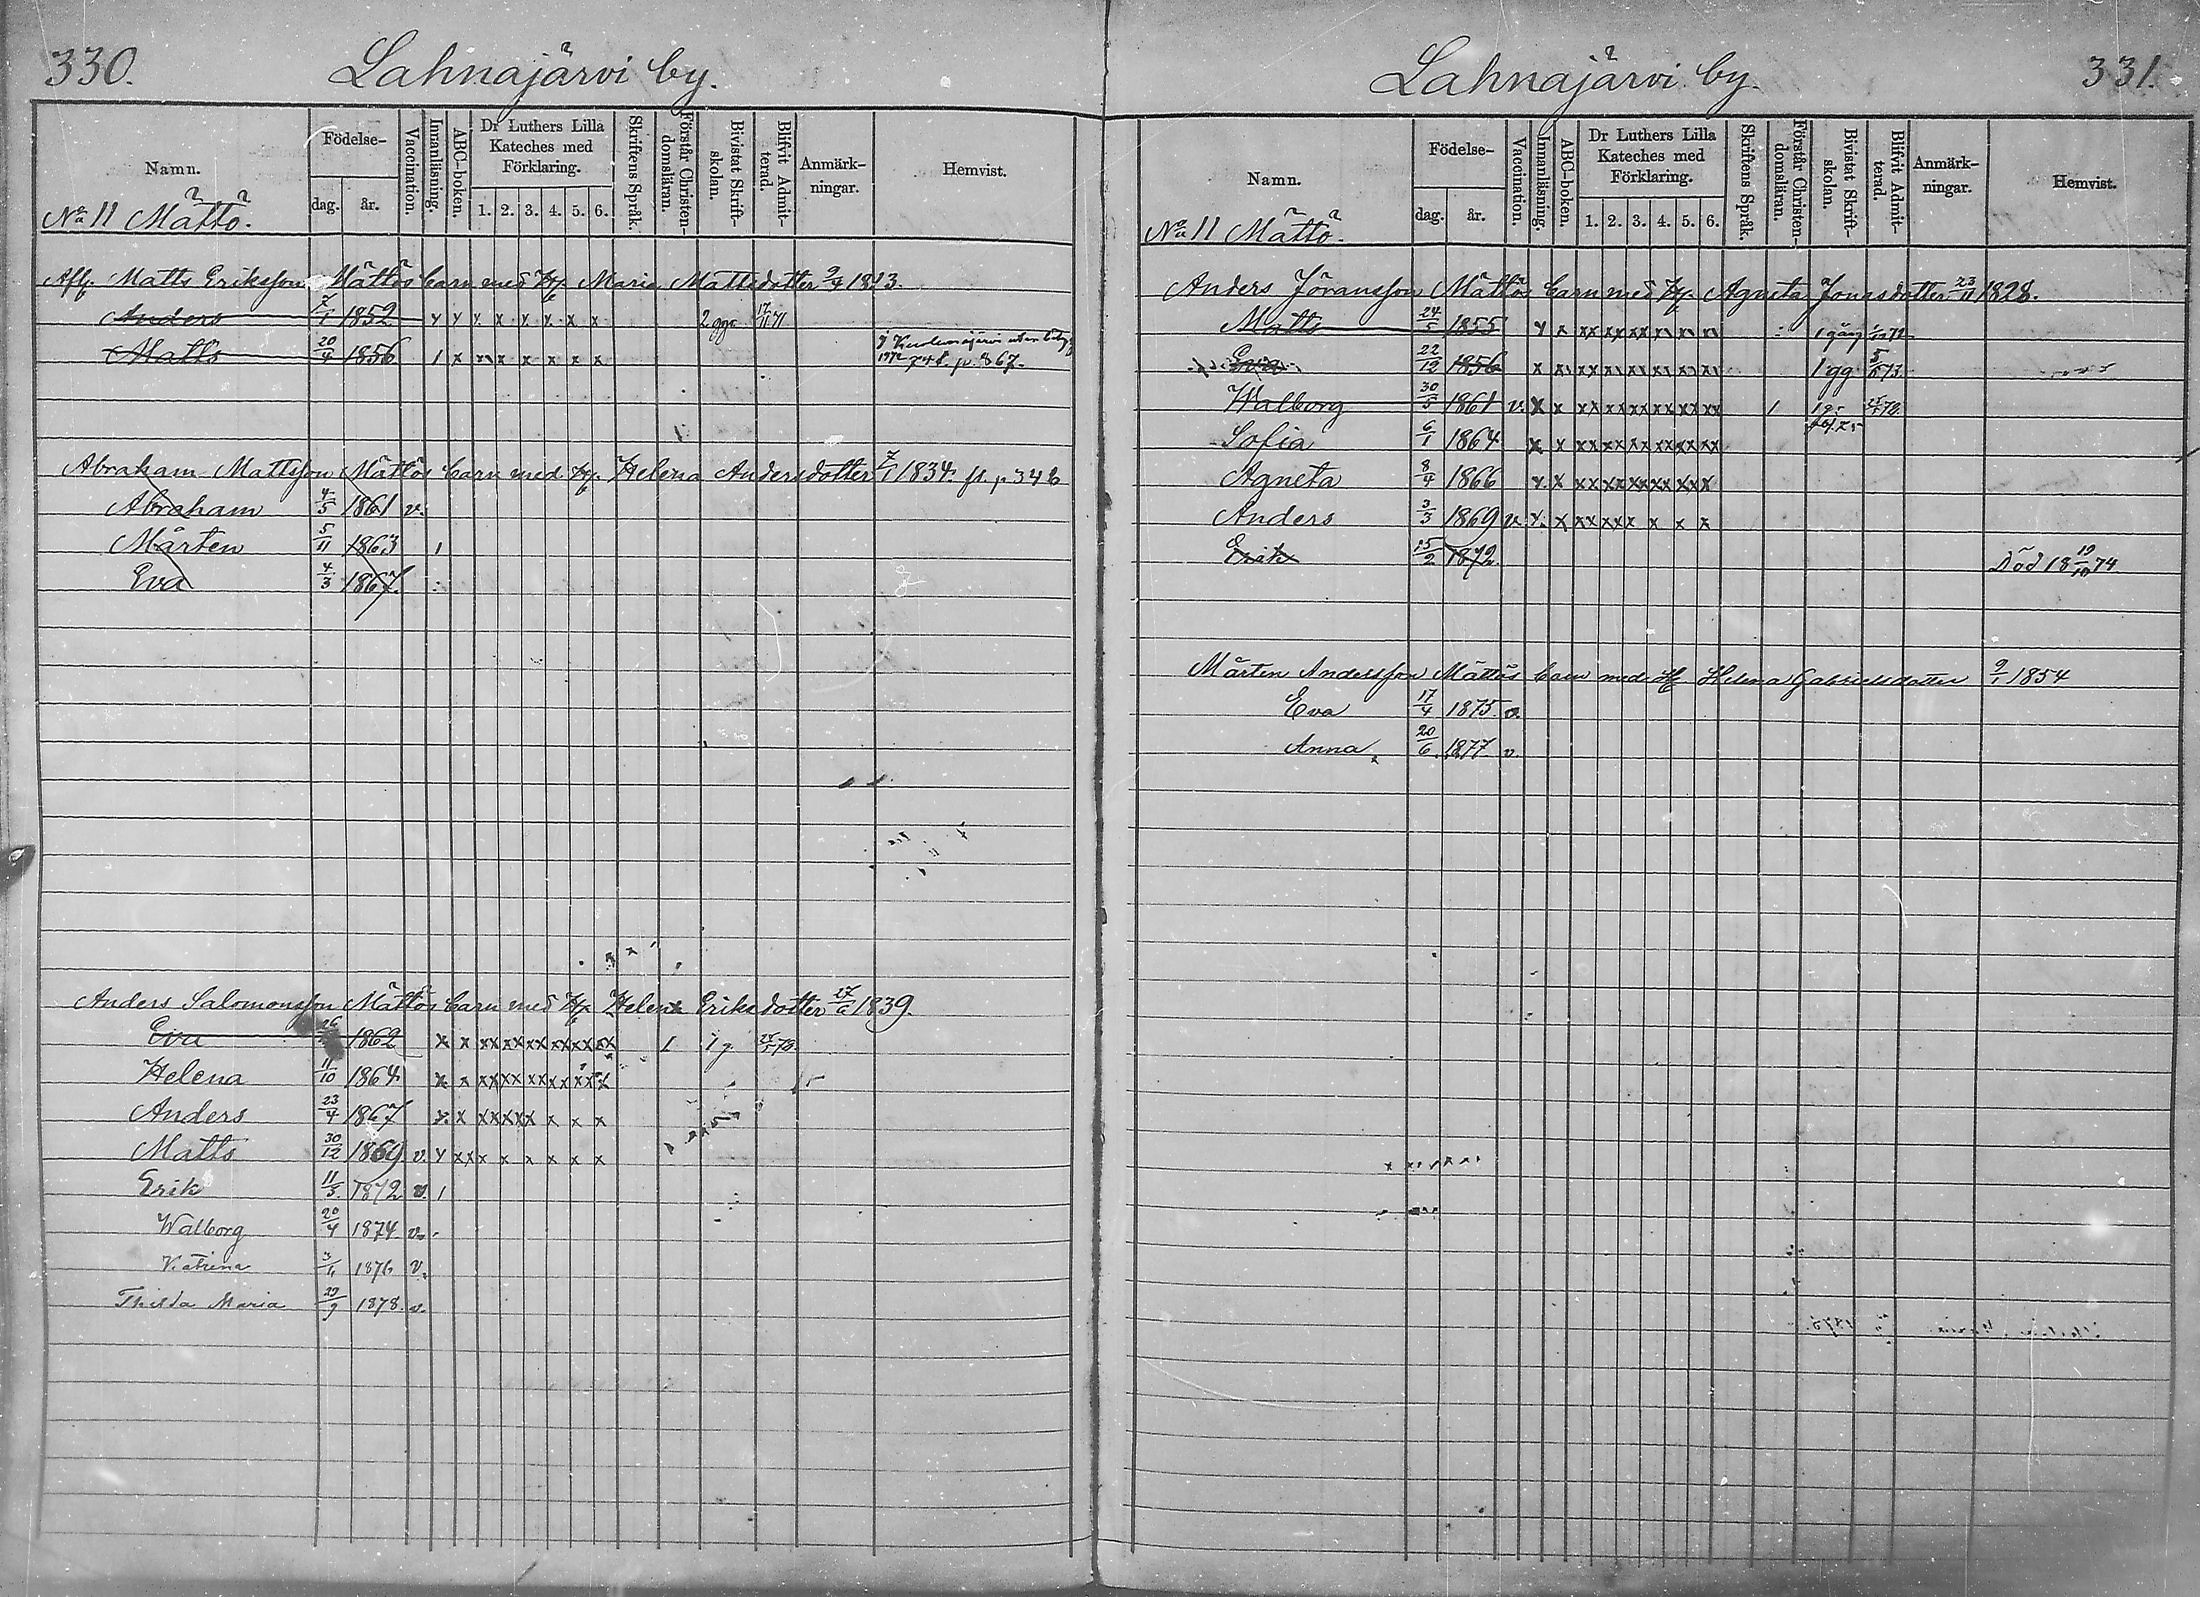 330. Lahnajärvi by.
Namn. Födelse- dag. år. Vaccination. Innanläsning. ABC-boken. Dr Luthers Lilla Kateches med Förklaring. 1. 2. 3. 4. 5. 6. Skriftens Språk. Förstår Christen-domsläran. Bivistat Skrift-skolan. Blifvit Admit-terad. Anmärk-ningar. Hemvist.
No 11 Mättö.
Afl. Matts Eriksson Mättös barn med H. Maria Mattsdotter 9/4 1823.
Anders 7/1 1852 x x x x x x x x 2 ggr 17/11 71
Matts 20/4 1856 1 x x x x x x x p. 867.
Abraham Mattsson Mättös barn med H. Helena Andersdotter 7/1 1834. fl. p. 346
Abraham 4/5 1861 v.
Mårten 5/11 1863 1
Eva 4/3 1867.
Anders Salomonsson Mättös barn med H. Helena Eriksdotter 27/6 1839.
Eva 26 1862 x x xx xx xx xx xx xx 1 1 g 25/5 78
Helena 11/10 1864 x x xx xx xx xx xx xx
Anders 23/4 1867 x x xx xx x x x x
Matts 30/12 1869 v. x xx x x x x x x
Erik 11/3 1872 v. 1
Walborg 20/4 1874 v.
Katrina 3/6 1876 v.
Thilda Maria 29/9 1878. v.
Lahnajärvi by. 331.
Namn. Födelse- dag. år. Vaccination. Innanläsning. ABC-boken. Dr Luthers Lilla Kateches med Förklaring. 1. 2. 3. 4. 5. 6. Skriftens Språk. Förstår Christen-domsläran. Bivistat Skrift-skolan. Blifvit Admit-terad. Anmärk-ningar. Hemvist.
No 11 Mättö.
Anders Jöransson Mättös barn med H. Agneta Jonasdotter 23/11 1828.
Matts 24/5 1855 x x xx xx xx xx xx xx 1 gång
Eva 22/12 1856 x x xx xx xx xx xx xx 1 gg 5/6 73
Walborg 30/5 1861 v. x x xx xx xx xx xx xx 1 1 g 25/5 78
Sofia 6/1 1864 x x xx xx xx xx xx xx
Agneta 8/4 1866 x x xx xx xx xx xx xx
Anders 3/3 1869 v. x x xx xx x x x x
Erik 15/2 1872 Död 18 19/10 74
Mårten Andersson Mättös barn med H Helena Gabrielsdotter 9/1 1854
Eva 17/4 1875 v.
Anna 20/6 1877 v.